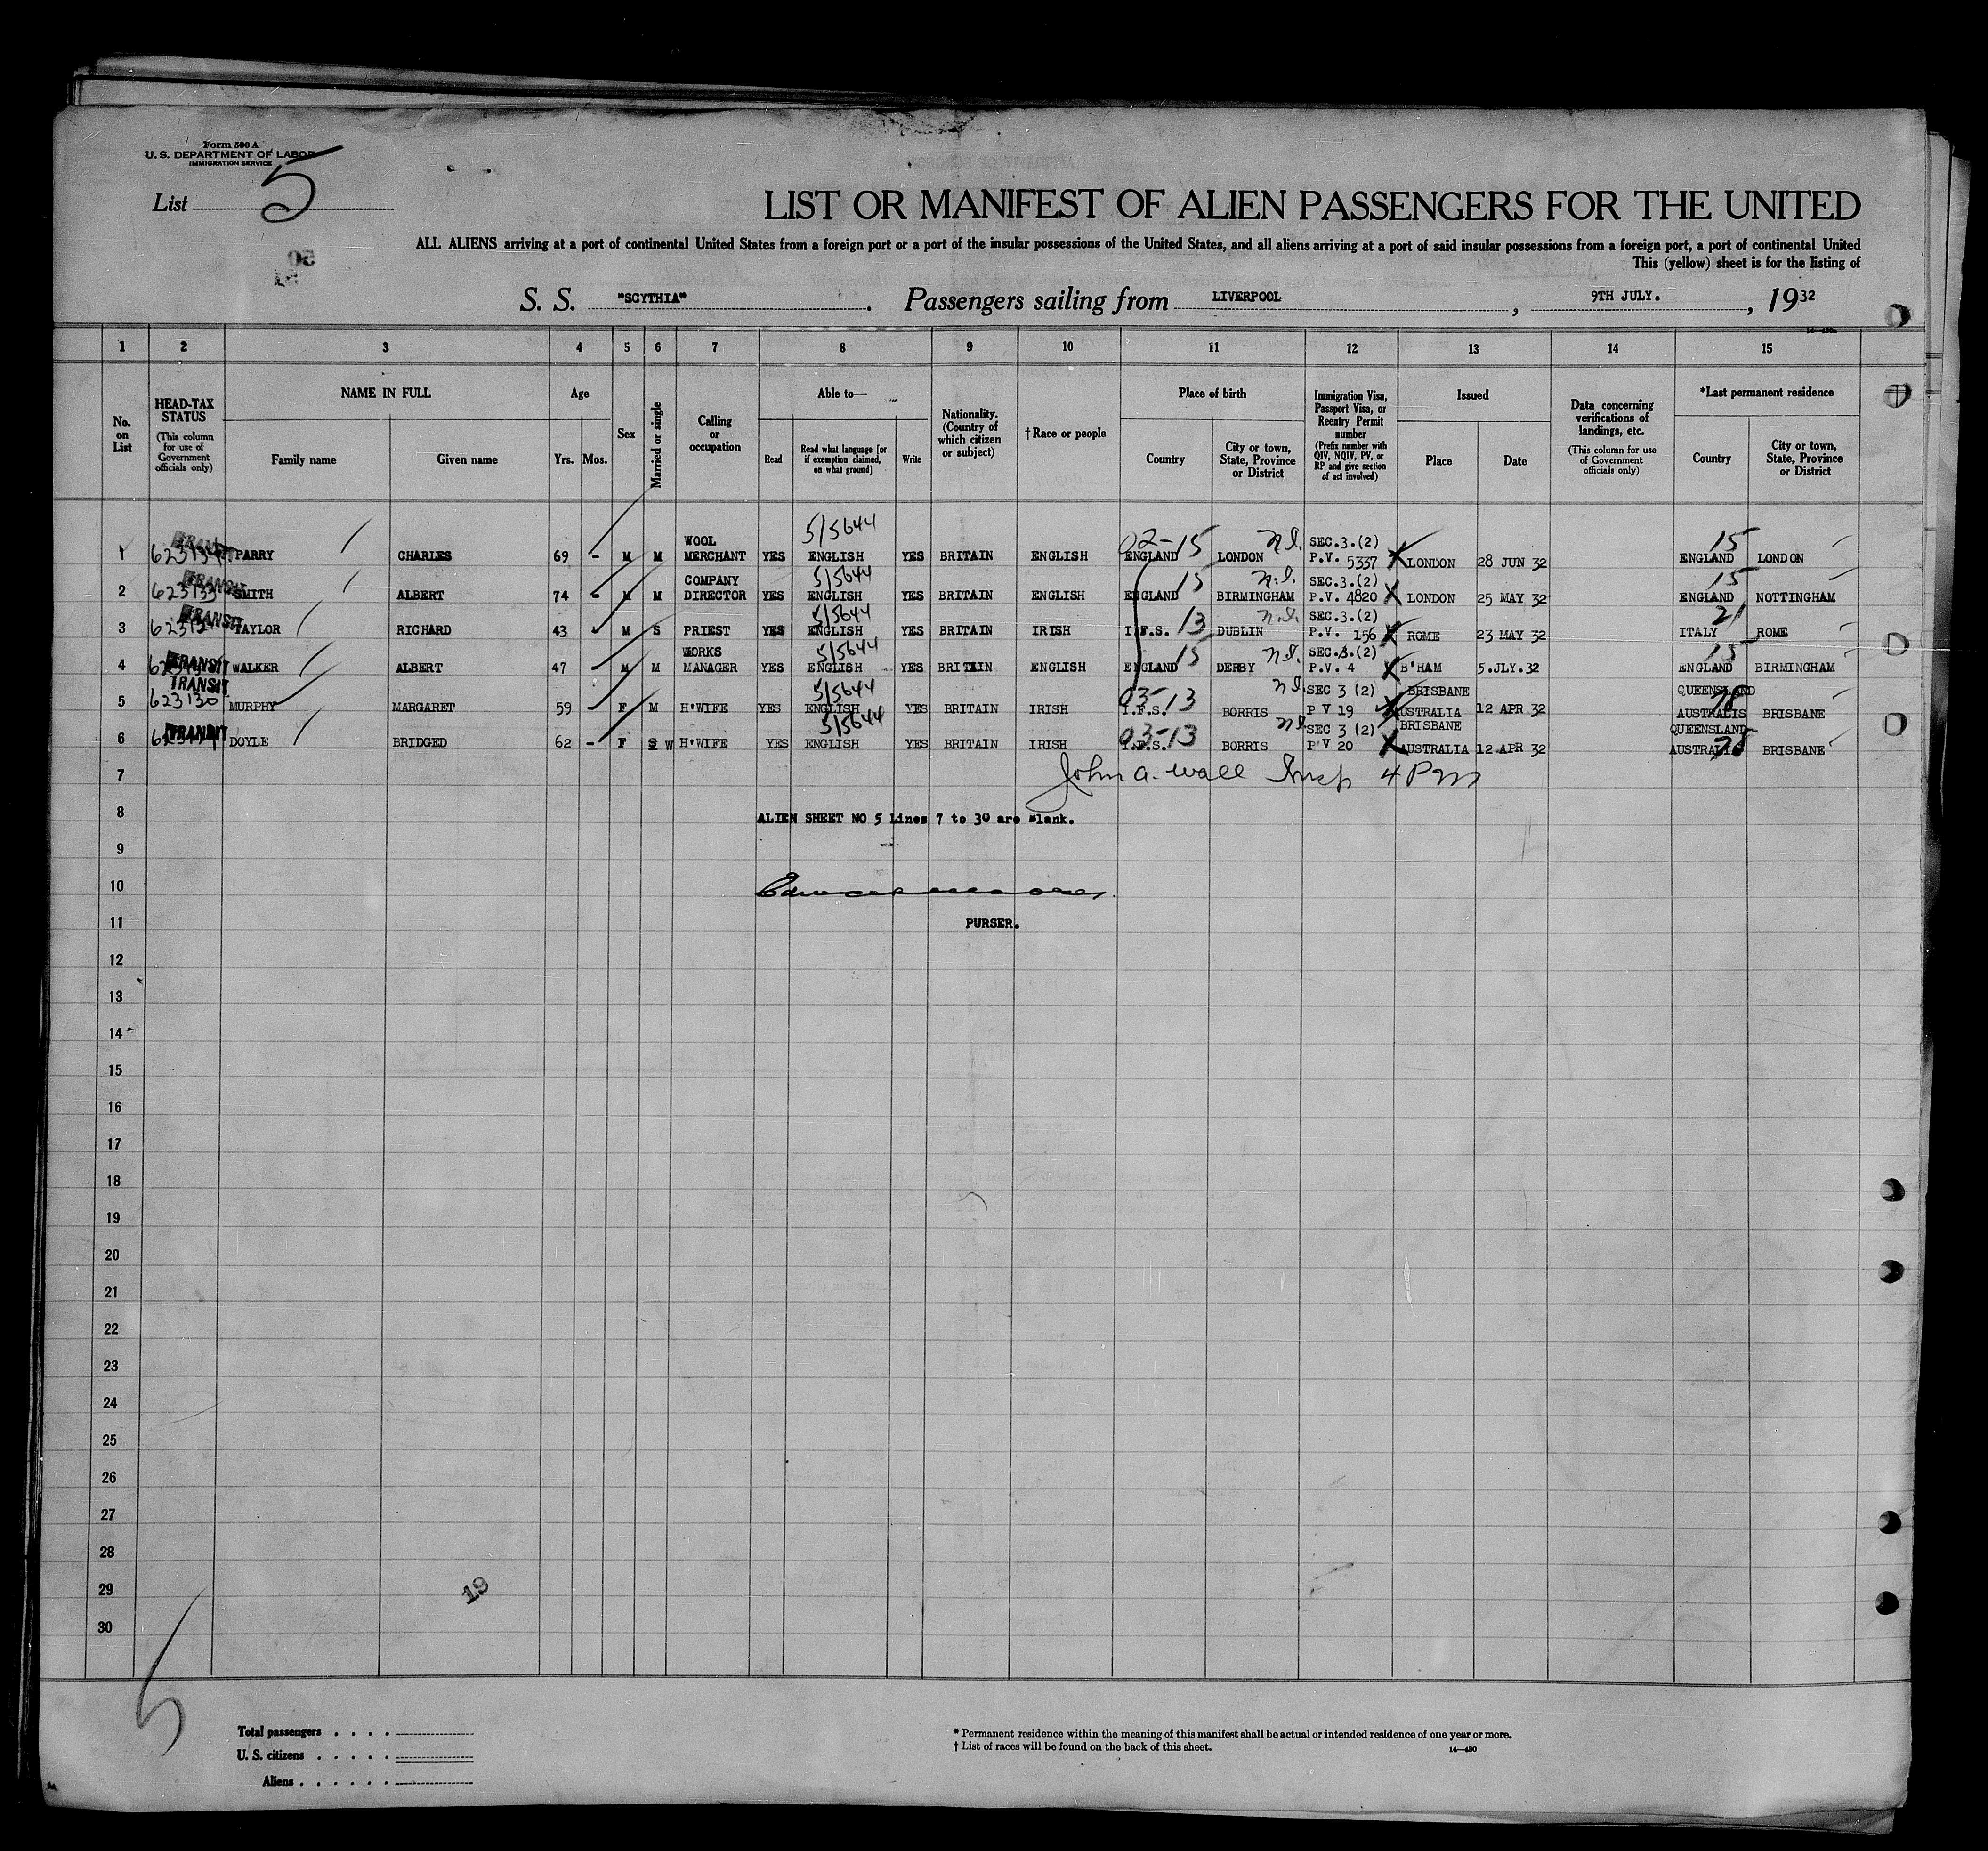 Form 500 A
U. S. DEPARTMENT OF LABOR
IMMIGRATION SERVICE
List 5
LIST OR MANIFEST OF ALIEN PASSENGERS FOR THE UNITED
ALL ALIENS arriving at a port of continental United States from a foreign port or a port of the insular possessions of the United States, and all aliens arriving at a port of said insular possessions from a foreign port, a port of continental United
This (yellow) sheet is for the listing of
S. S. "SCYTHIA". Passengers sailing from LIVERPOOL, 9TH JULY., 1932
1 2 3 4 5 6 7 8 9 10 11 12 13 14 15
No. on List
HEAD-TAX STATUS (This column for use of Government officials only)
NAME IN FULL Family name Given name
Age Yrs. Mos.
Sex
Married or single
Calling or occupation
Able to— Read Read what language [or if exemption claimed, on what ground] Write
Nationality. (Country of which citizen or subject)
† Race or people
Place of birth Country City or town, State, Province or District
Immigration Visa, Passport Visa, or Reentry Permit number (Prefix number with QIV, NQIV, PV, or RP and give section of act involved)
Issued Place Date
Data concerning verifications of landings, etc. (This column for use of Government officials only)
*Last permanent residence Country City or town, State, Province or District
1 TRANSIT PARRY CHARLES 69 - M M WOOL MERCHANT YES 5/5644 ENGLISH YES BRITAIN ENGLISH 02-15 ENGLAND LONDON SEC.3.(2) P.V. 5337 LONDON 28 JUN 32 15 ENGLAND LONDON
2 TRANSIT 623133 SMITH ALBERT 74 - M M COMPANY DIRECTOR YES 5/5644 ENGLISH YES BRITAIN ENGLISH 15 ENGLAND BIRMINGHAM SEC.3.(2) P.V. 4820 LONDON 25 MAY 32 15 ENGLAND NOTTINGHAM
3 TRANSIT TAYLOR RICHARD 43 M S PRIEST YES 5/5644 ENGLISH YES BRITAIN IRISH I.F.S. 13 DUBLIN SEC.3.(2) P.V. 156 ROME 23 MAY 32 21 ITALY ROME
4 TRANSIT WALKER ALBERT 47 M M WORKS MANAGER YES 5/5644 ENGLISH YES BRITAIN ENGLISH 15 ENGLAND DERBY SEC.3.(2) P.V. 4 B'HAM 5.JLY.32 15 ENGLAND BIRMINGHAM
5 TRANSIT 623130 MURPHY MARGARET 59 F M H'WIFE YES 5/5644 ENGLISH YES BRITAIN IRISH 03-13 I.F.S. BORRIS SEC 3 (2) P V 19 BRISBANE AUSTRALIA 12 APR 32 QUEENSLAND AUSTRALIS BRISBANE
6 TRANSIT DOYLE BRIDGED 62 - F S W H'WIFE YES 5/5644 ENGLISH YES BRITAIN IRISH 03-13 I.F.S. BORRIS SEC 3 (2) P V 20 BRISBANE AUSTRALIA 12 APR 32 QUEENSLAND AUSTRALIA BRISBANE
7 John A. Wall Insp 4 PM
8 ALIEN SHEET NO 5 Lines 7 to 30 are blank.
9
10
11 PURSER.
12
13
14
15
16
17
18
19
20
21
22
23
24
25
26
27
28
29
19
30
5
Total passengers . . . .
U. S. citizens . . . . .
Aliens . . . . . .
* Permanent residence within the meaning of this manifest shall be actual or intended residence of one year or more.
† List of races will be found on the back of this sheet.
14—430